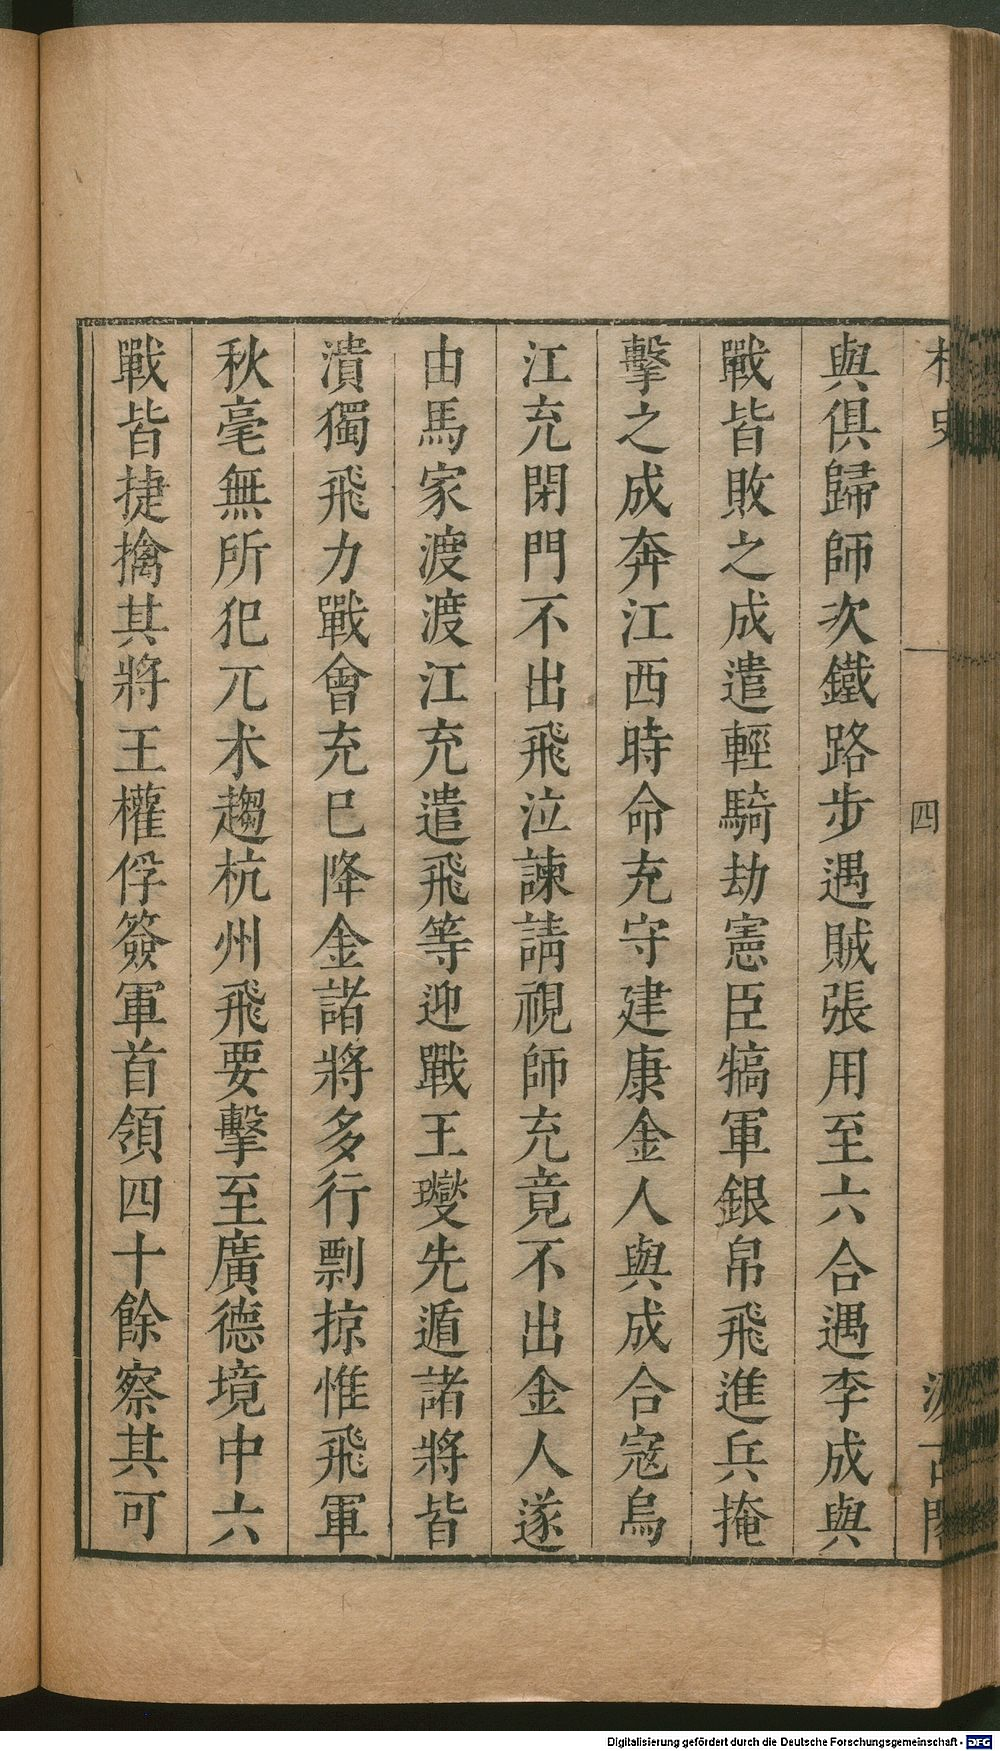 桯史
四
汲古閣
與俱歸師次鐵路步遇賊張用至六合遇李成與
戰皆敗之成遣輕騎劫憲臣犒軍銀帛飛進兵掩
擊之成奔江西時命充守建康金人與成合寇烏
江充閉門不出飛泣諫請視師充竟不出金人遂
由馬家渡渡江充遣飛等迎戰王𤫉先遁諸將皆
潰獨飛力戰會充已降金諸將多行剽掠惟飛軍
秋毫無所犯兀朮趨杭州飛要擊至廣德境中六
戰皆捷擒其將王權俘簽軍首領四十餘察其可
Digitalisierung gefördert durch die Deutsche Forschungsgemeinschaft - DFG